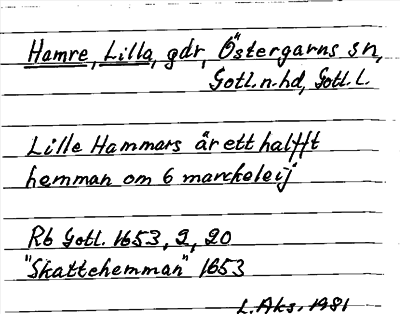 Hamre, Lilla, gdr, Östergarns sn,
Gotl. n. hd, Gotl. L.
Lille Hammars är ett halfft
hemman om 6 marckeleij
Rb Gotl. 1653, 2, 20
"Skattehemman" 1653
L. Aks. 1981